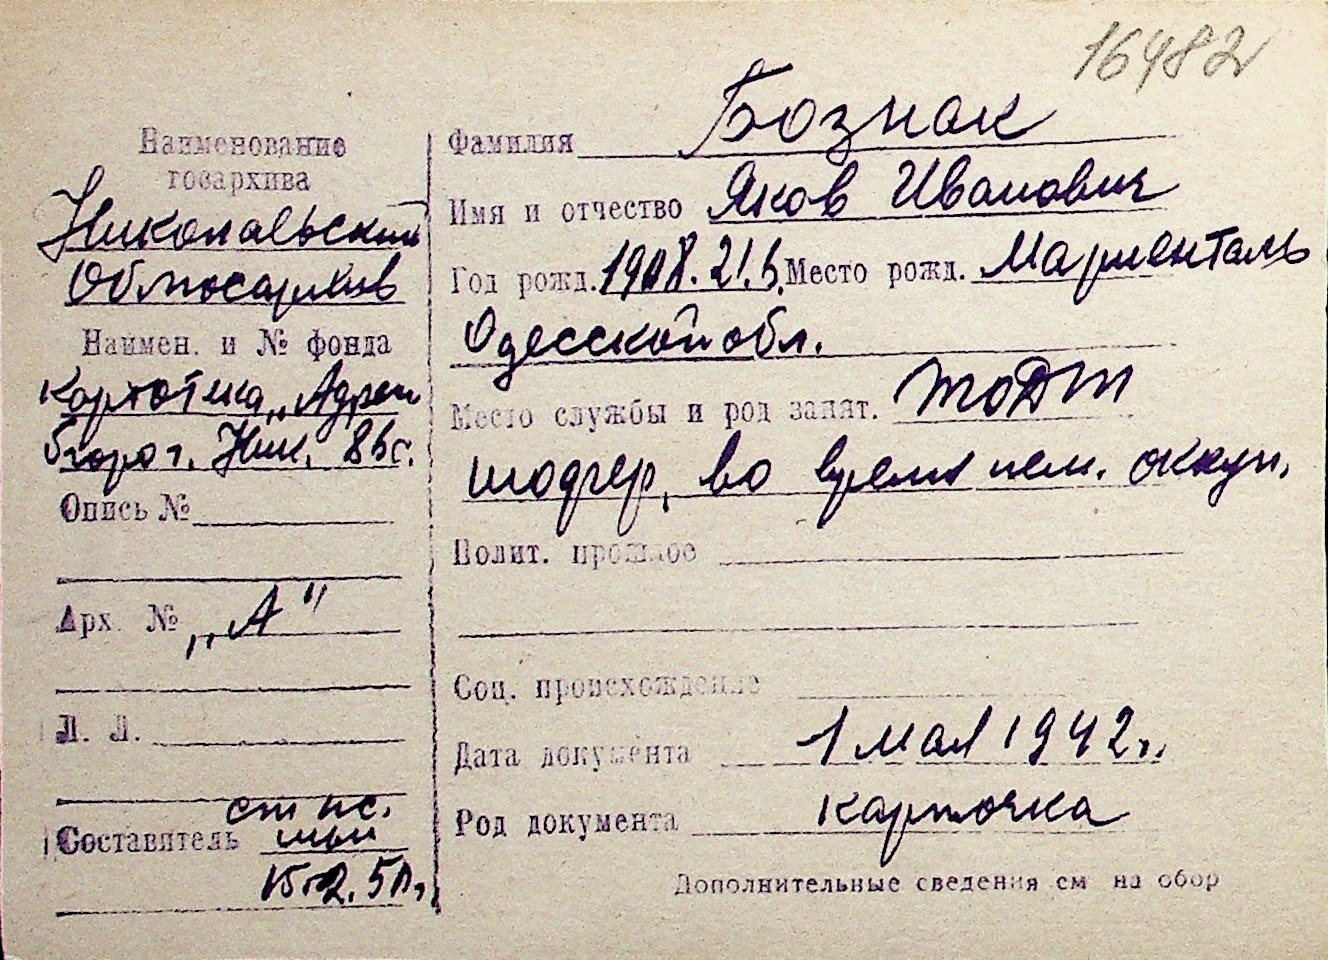 16482
Наименование
госархива
Николаевский
Облгосархив
Наимен. и № фонда
Картотека „Адрес
бюро г. Ник.
Опись №
Арх. № „А"
Л. Л.
Составитель
Фамилия Бознак
Имя и отчество Яков Иванович
Год рожд. 1908. Место рожд. Мариенталь
Одесской обл.
Место службы и род занят. ТОДТ
шофер, во время нем. оккуп.
Полит. прошлое
Соц. происхождение
Дата документа 1 мая 1942 г.
Род документа карточка
Дополнительные сведения см на обор